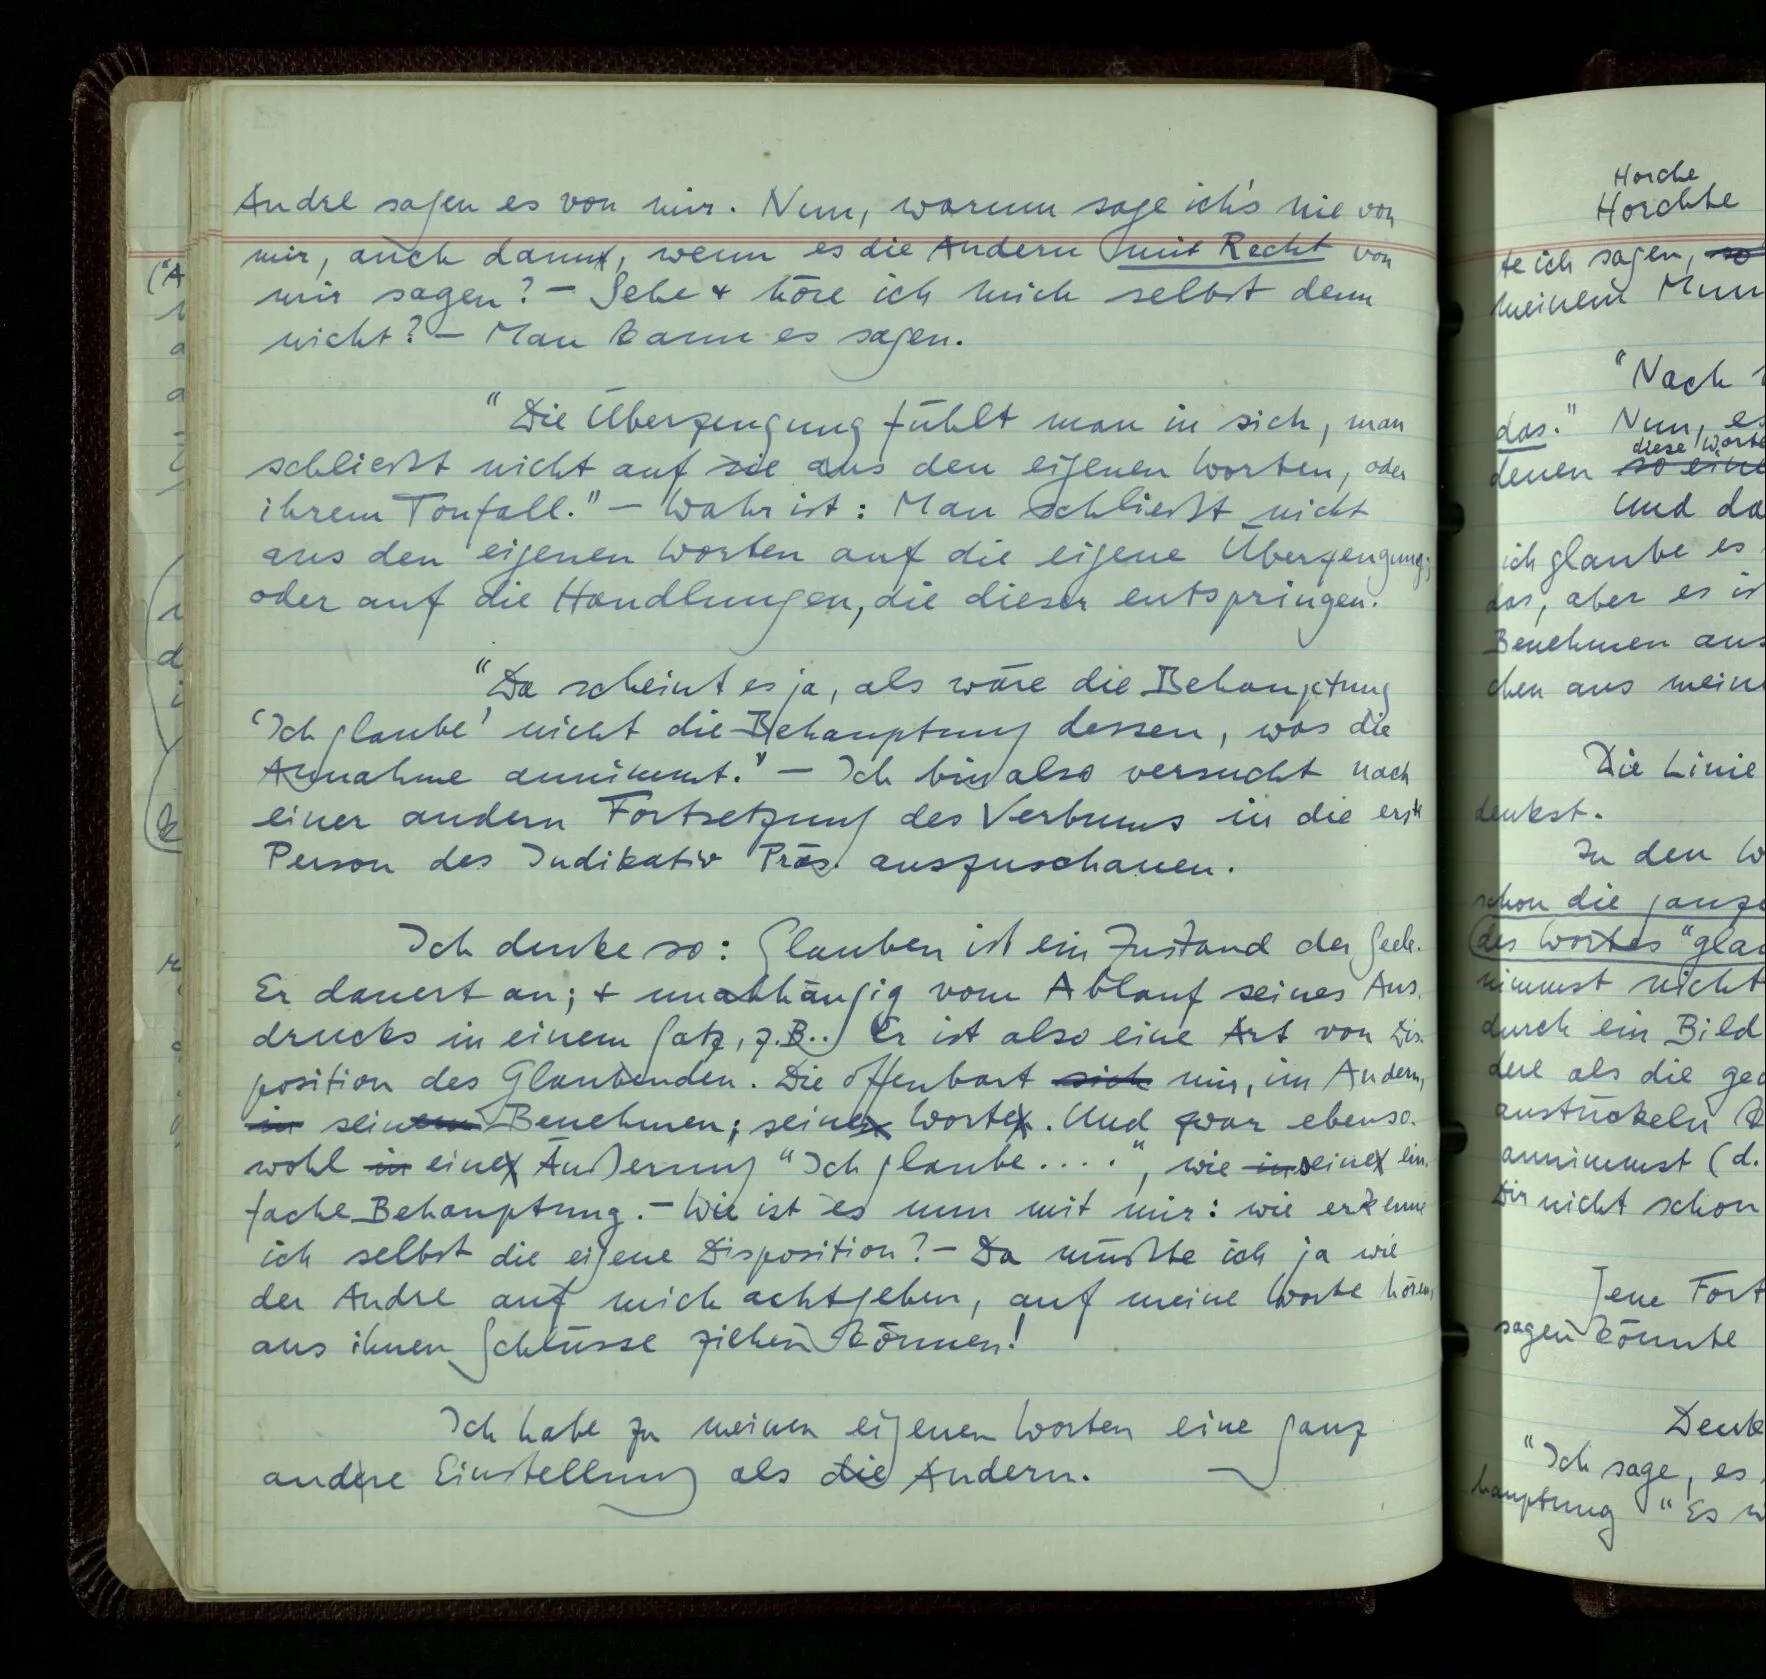 Andre sagen es von mir. Nun, warum sage ich's nie von
mir, auch dann, wenn es die Andern mit Recht von
mir sagen? – Sehe + höre ich mich selbst denn
nicht? – Man kann es sagen.
"Die Überzeugung fühlt man in sich, man
schließt nicht auf sie aus den eigenen Worten, oder
ihrem Tonfall." – Wahr ist: Man schließt nicht
aus den eigenen Worten auf die eigene Überzeugung;
oder auf die Handlungen, die dieser entspringen.
"Da scheint es ja, als wäre die Behauptung
'Ich glaube' nicht die Behauptung dessen, was die
Annahme annimmt." – Ich bin also versucht nach
einer andern Fortsetzung des Verbums in die erste
Person des Indikativ Präs. auszuschauen.
Ich denke so: Glauben ist ein Zustand der Seele.
Er dauert an; + unabhängig vom Ablauf seines Aus-
drucks in einem Satz, z.B.. Er ist also eine Art von Dis-
position des Glaubenden. Die offenbart sich mir, im Andern,
in seinem Benehmen; seine Worte. Und zwar ebenso-
wohl in eine Äußerung "Ich glaube....", wie in seine ein-
fache Behauptung. – Wie ist es nun mit mir: wie erkenne
ich selbst die eigene Disposition? – Da müßte ich ja wie
der Andre auf mich achtgeben, auf meine Worte hören,
aus ihnen Schlüsse ziehen können!
Ich habe zu meinen eigenen Worten eine ganz
andere Einstellung als die Andern.
Horche
Horchte
te ich sagen, so
meinem Mun
"Nach
das." Nun, es
diese Worte
denen so eine
Und da
ich glaube es
das, aber es ist
Benehmen aus
chen aus meine
Die Linie
denkst.
In den W
schon die ganze
des Wortes "glau
nimmst nicht
durch ein Bild
dere als die ged
anstückeln k
annimmst (d.
Dir nicht schon
Jene Fort
sagen könnte
Denk
"Ich sage, es
hauptung "Es w